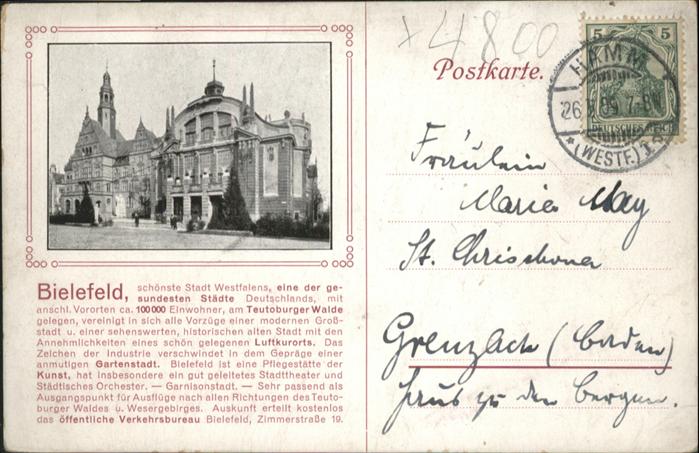 x 4800
Postkarte.
5 5
DEUTSCHES REICH
HAMM
(WESTF.)
Fräulein
Marie May
St. Chrischona
Grenzach (Baden)
Haus zu den Bergen.
Bielefeld, schönste Stadt Westfalens, eine der ge-
sundesten Städte Deutschlands, mit
anschl. Vororten ca. 100000 Einwohner, am Teutoburger Walde
gelegen, vereinigt in sich alle Vorzüge einer modernen Groß-
stadt u. einer sehenswerten, historischen alten Stadt mit den
Annehmlichkeiten eines schön gelegenen Luftkurorts. Das
Zeichen der Industrie verschwindet in dem Gepräge einer
anmutigen Gartenstadt. Bielefeld ist eine Pflegestätte der
Kunst, hat insbesondere ein gut geleitetes Stadttheater und
Städtisches Orchester. — Garnisonstadt. — Sehr passend als
Ausgangspunkt für Ausflüge nach allen Richtungen des Teuto-
burger Waldes u. Wesergebirges. Auskunft erteilt kostenlos
das öffentliche Verkehrsbureau Bielefeld, Zimmerstraße 19.